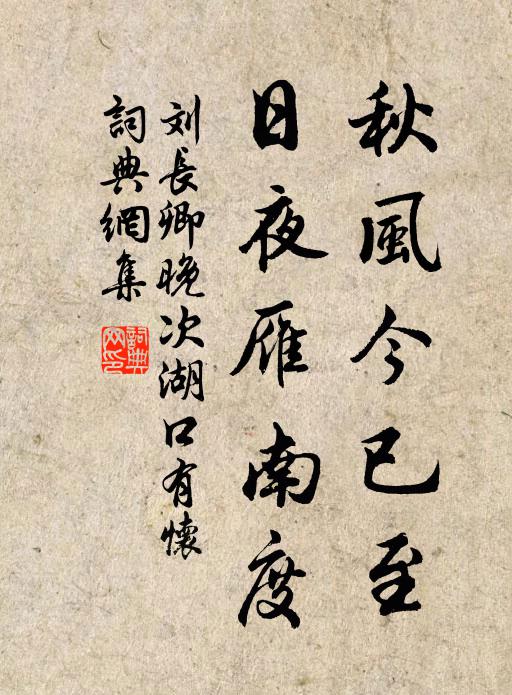 秋風今已至
日夜雁南度
刘長卿晚次湖口有懷
詞典網集
詞典
网印